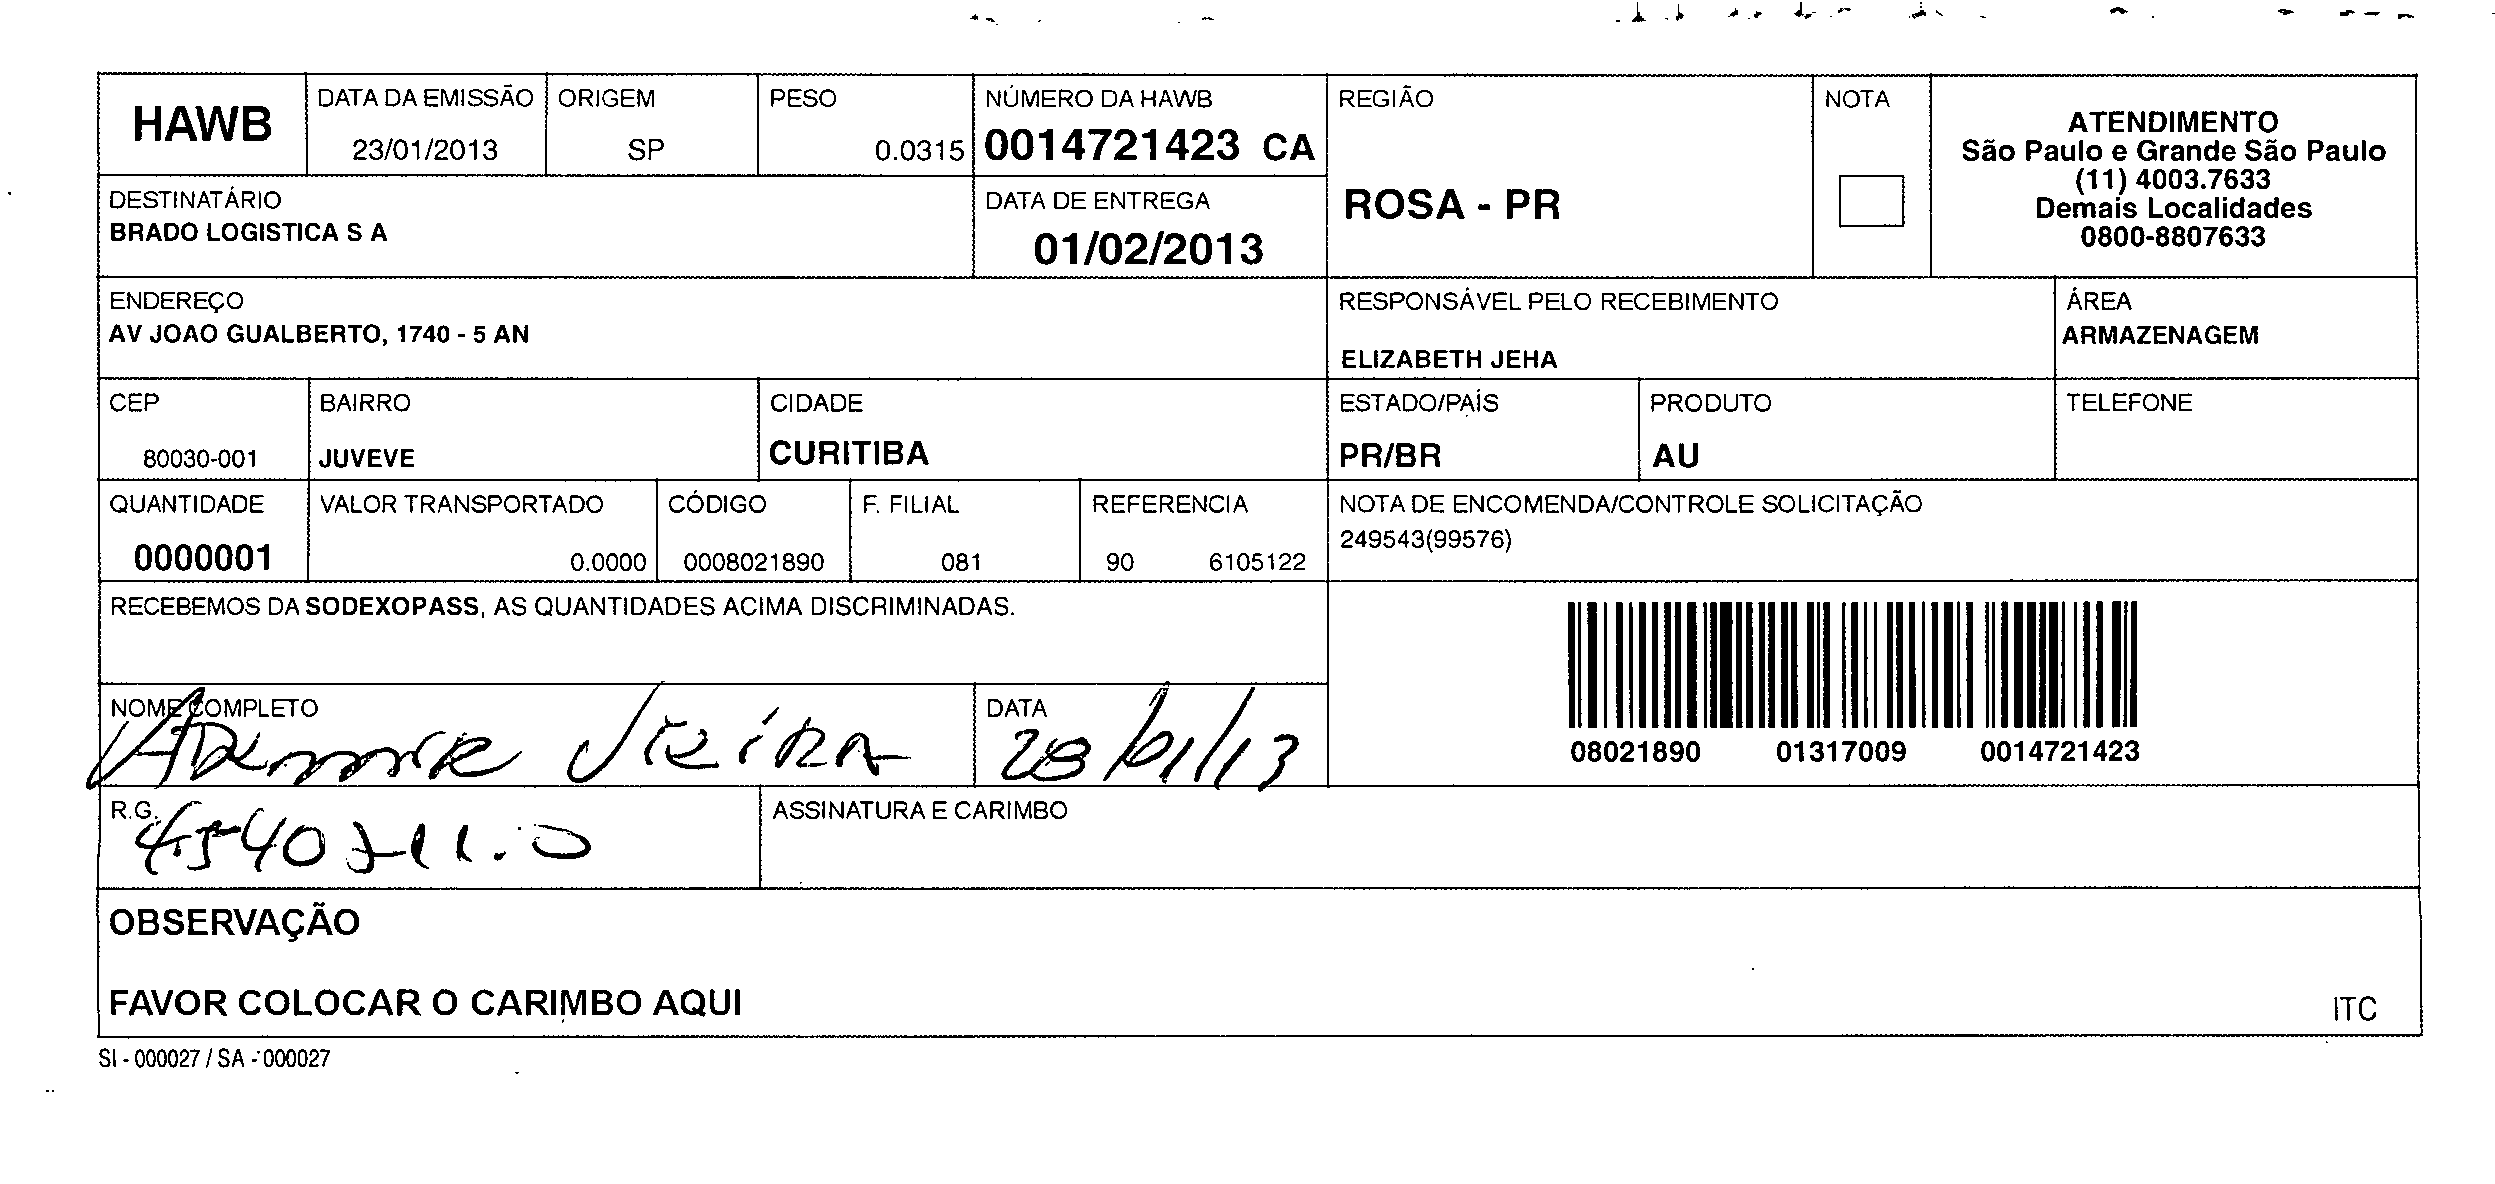 HAWB
DATA DA EMISSÃO
23/01/2013
ORIGEM
SP
PESO
0.0315
NÚMERO DA HAWB
0014721423 CA
REGIÃO
ROSA - PR
NOTA
ATENDIMENTO
São Paulo e Grande São Paulo
(11) 4003.7633
Demais Localidades
0800-8807633
DESTINATÁRIO
BRADO LOGISTICA S A
DATA DE ENTREGA
01/02/2013
ENDEREÇO
AV JOAO GUALBERTO, 1740 - 5 AN
RESPONSÁVEL PELO RECEBIMENTO
ELIZABETH JEHA
ÁREA
ARMAZENAGEM
CEP
80030-001
BAIRRO
JUVEVE
CIDADE
CURITIBA
ESTADO/PAÍS
PR/BR
PRODUTO
AU
TELEFONE
QUANTIDADE
0000001
VALOR TRANSPORTADO
0.0000
CÓDIGO
0008021890
F. FILIAL
081
REFERENCIA
90 6105122
NOTA DE ENCOMENDA/CONTROLE SOLICITAÇÃO
249543(99576)
RECEBEMOS DA SODEXOPASS, AS QUANTIDADES ACIMA DISCRIMINADAS.
08021890 01317009 0014721423
NOME COMPLETO
Vieira
DATA
28/01/13
R.G.
ASSINATURA E CARIMBO
OBSERVAÇÃO
FAVOR COLOCAR O CARIMBO AQUI
ITC
SI - 000027 / SA - 000027